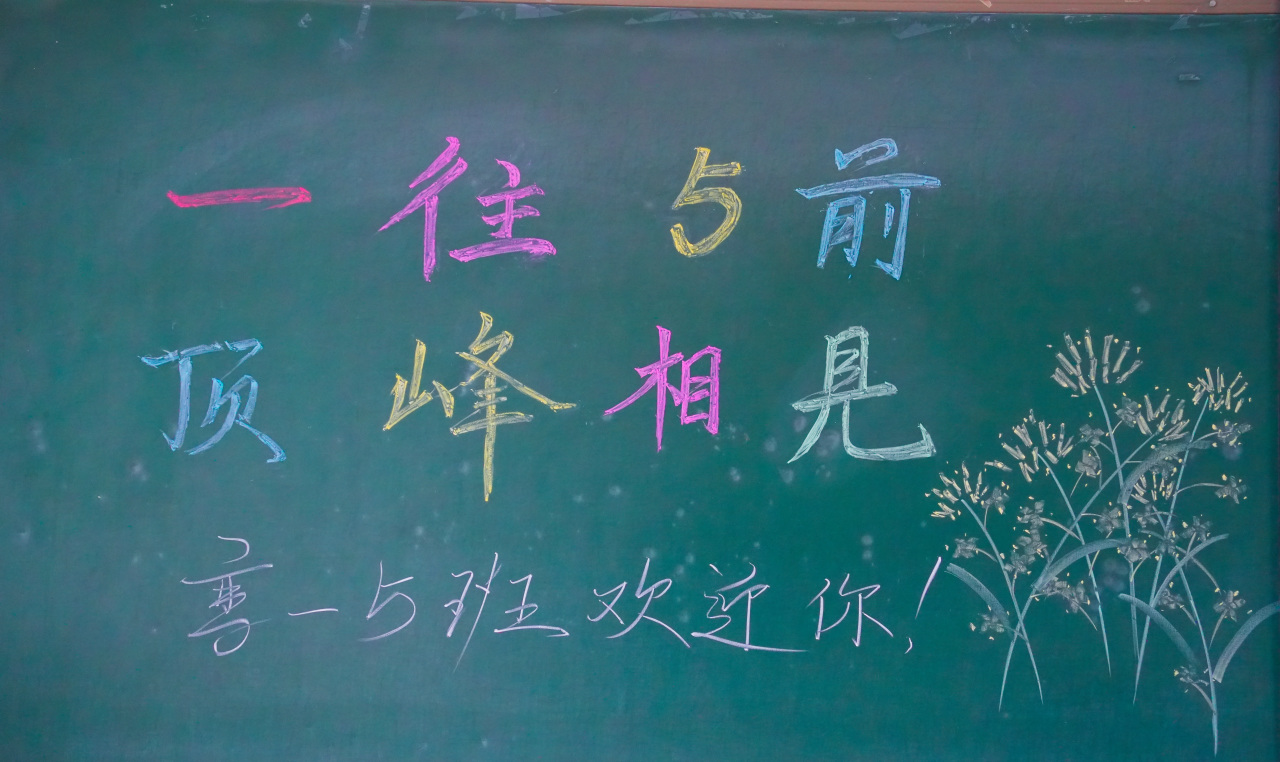 一往5前
顶峰相见
高一5班欢迎你!